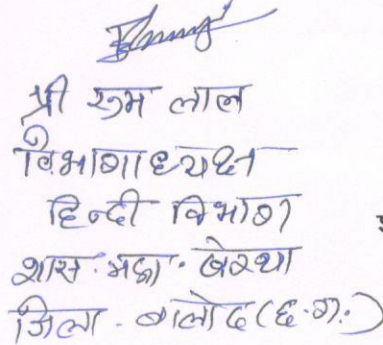 श्री रूम लाल
विभागाध्यक्ष
हिन्दी विभाग
शास. महा.
जिला - बालोद (छ.ग.)